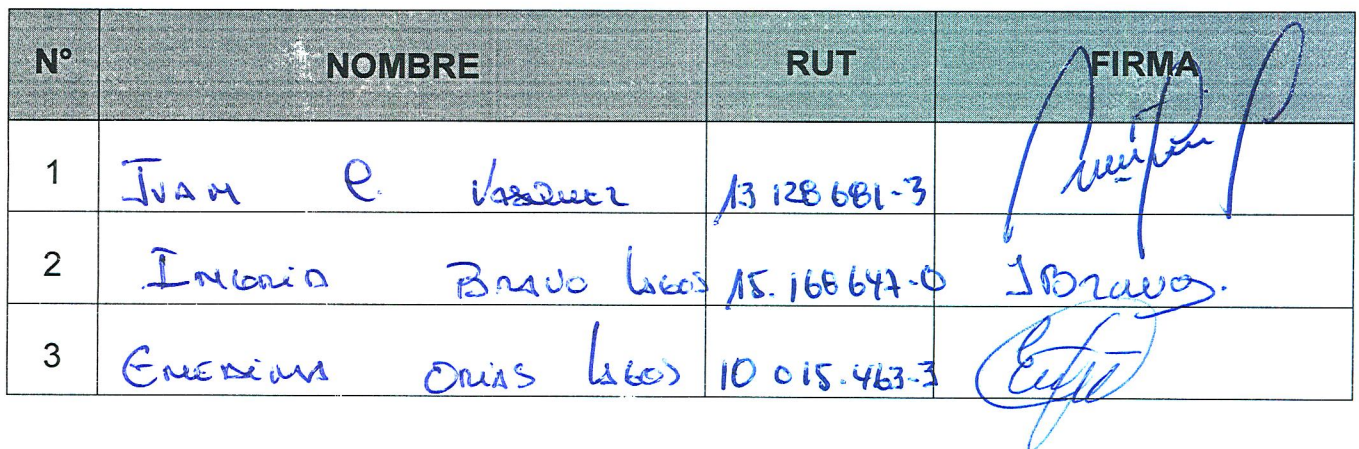 N° NOMBRE RUT FIRMA
1 JUAN C. VASQUEZ 13 128 681-3
2 INGRID BRAVO LAGOS 15.166 647-0 IBravo.
3 LAGOS 10 015.463-3